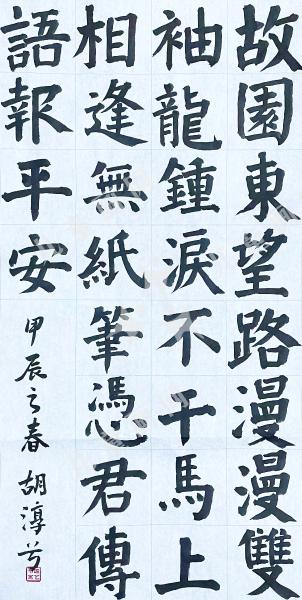 故園東望路漫漫雙
袖龍鍾淚不干馬上
相逢無紙筆馮心君傳
語報平安
甲辰之春胡淳兮